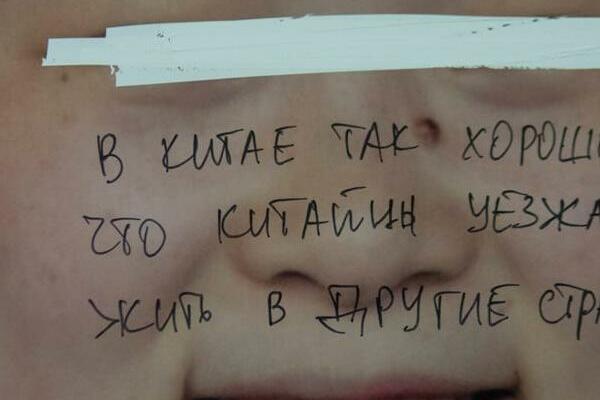 В КИТАЕ ТАК ХОРОШ
ЧТО КИТАЙЦЫ УЕЗЖА
ЖИТЬ В ДРУГИЕ СТРА